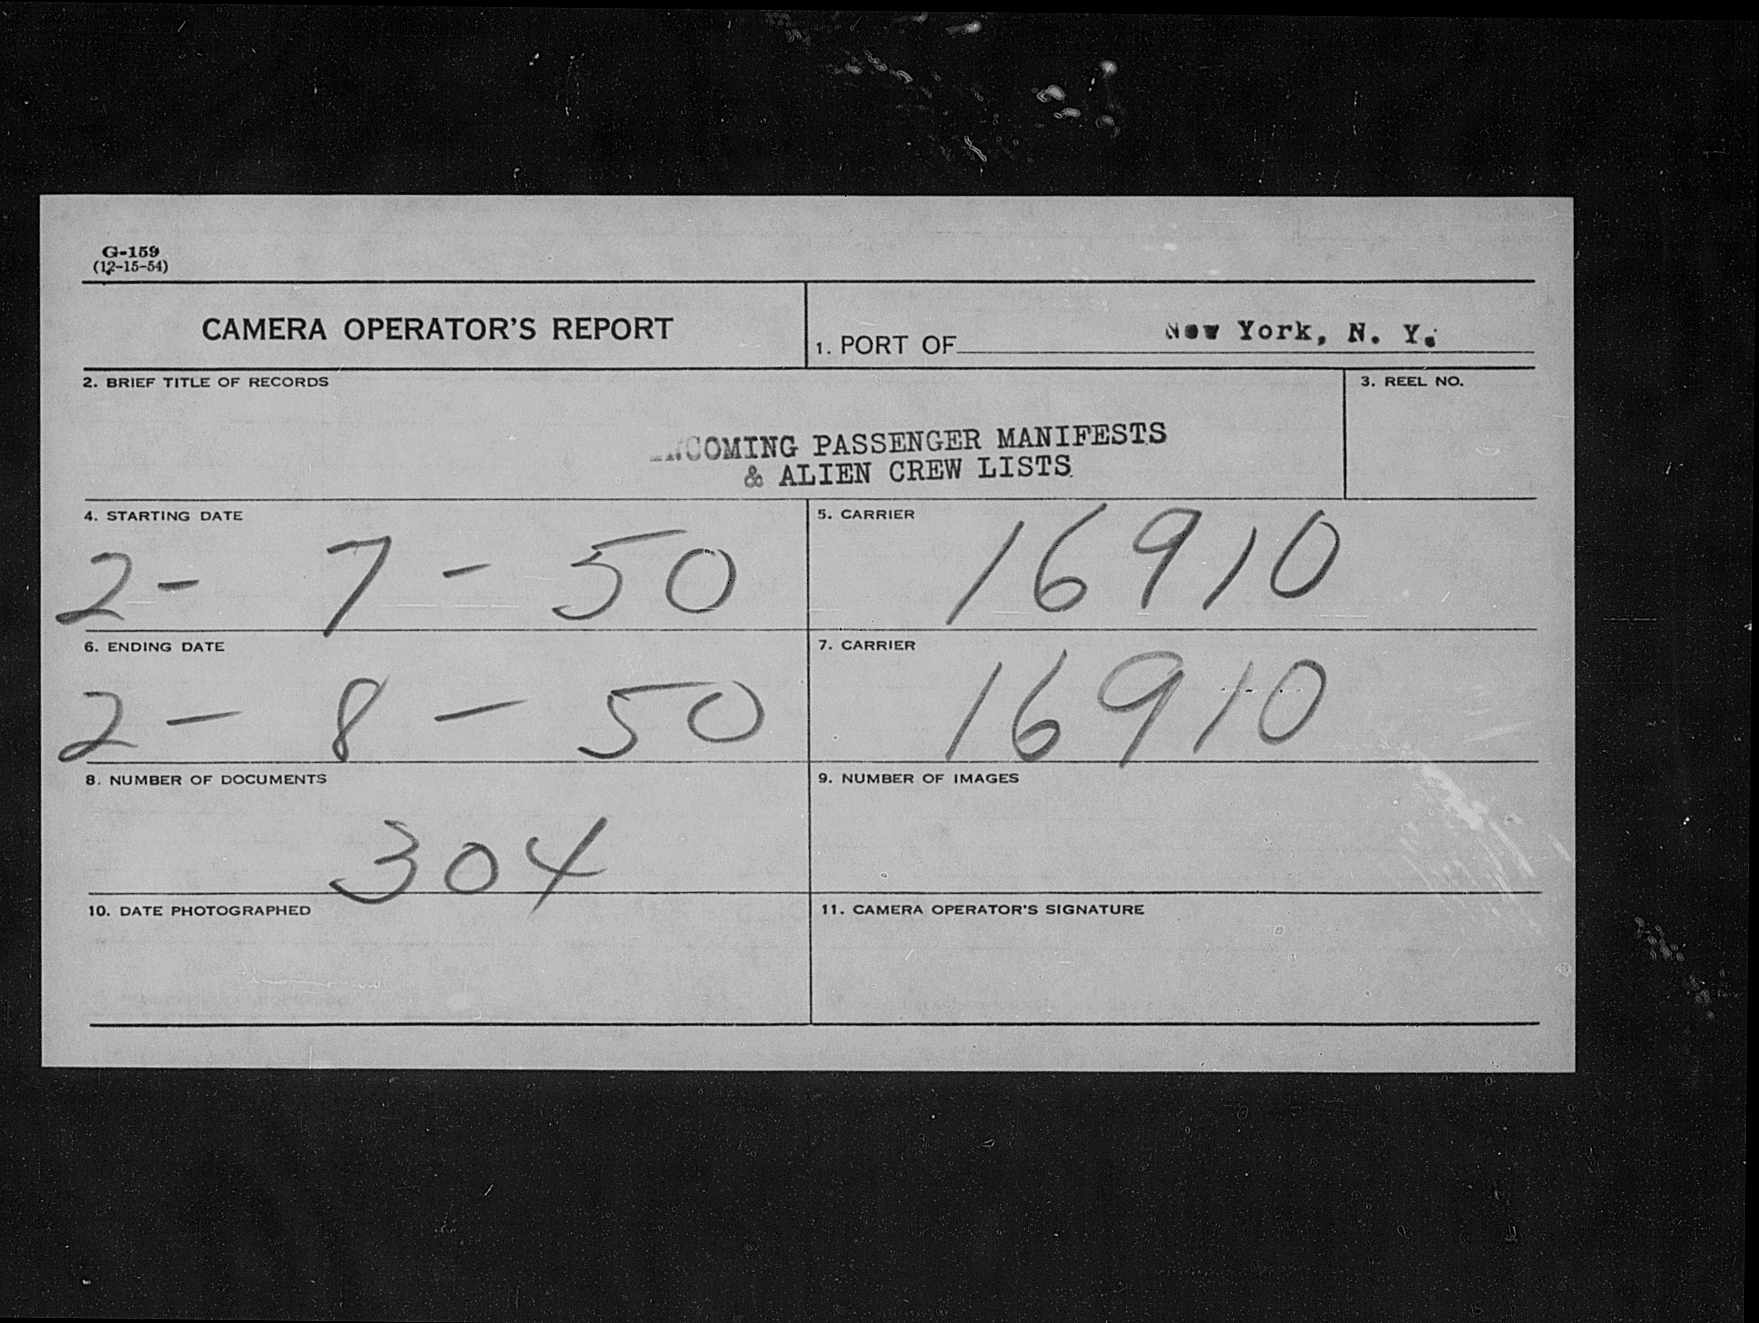 G-159
(12-15-54)
CAMERA OPERATOR'S REPORT
1. PORT OF New York, N. Y.
2. BRIEF TITLE OF RECORDS
3. REEL NO.
INCOMING PASSENGER MANIFESTS
& ALIEN CREW LISTS
4. STARTING DATE
2 - 7 - 50
5. CARRIER
16910
6. ENDING DATE
2 - 8 - 50
7. CARRIER
16910
8. NUMBER OF DOCUMENTS
304
9. NUMBER OF IMAGES
10. DATE PHOTOGRAPHED
11. CAMERA OPERATOR'S SIGNATURE